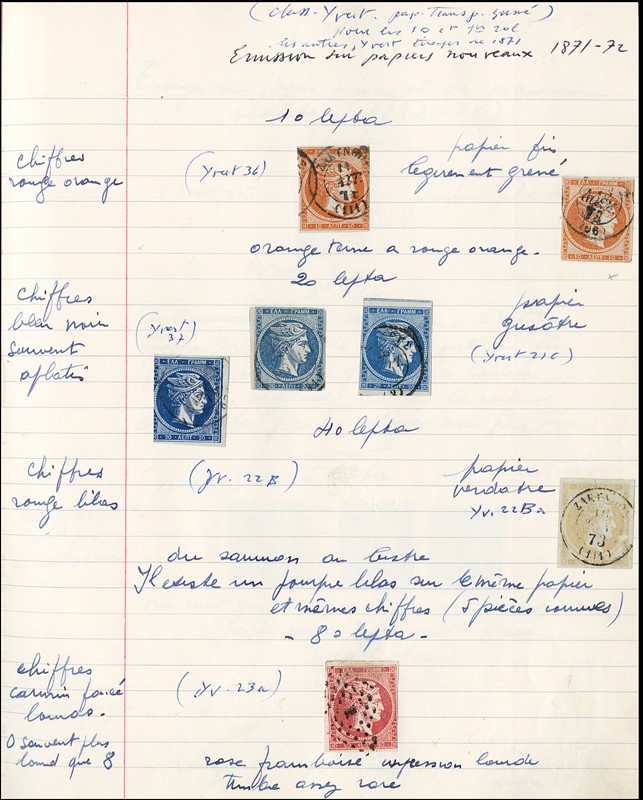 (class. Yvert. pap. Transp. grené)
pour les 10 et 1er 20l
les autres, Yvert tirages de 1871
Emission sur papiers nouveaux 1871-72
10 lepta
chiffres
rouge orange
(Yvert 36)
papier fin
legerement grené
orange terne a rouge orange.
20 lepta
chiffres
bleu noir
souvent
aplatis
(Yvert
37)
papier
grisâtre
(Yvert 21c)
ΕΛΛ ΓΡΑΜΜ
20 ΛΕΠΤ 20
ΕΛΛ ΓΡΑΜΜ
20 ΛΕΠΤ 20
ΕΛΛ ΓΡΑΜΜ
20 ΛΕΠΤ 20
40 lepta
chiffres
rouge lilas
(Yv. 22B)
papier
verdatre
Yv. 22Ba
73
du saumon au bistre
Il existe un lilas sur le même papier
et mêmes chiffres (5 pièces connues)
- 80 lepta -
chiffres
carmin foncé
lourds.
0 souvent plus
lourd que 8
(Yv. 23a)
rose framboisé impression lourde
Timbre assez rare